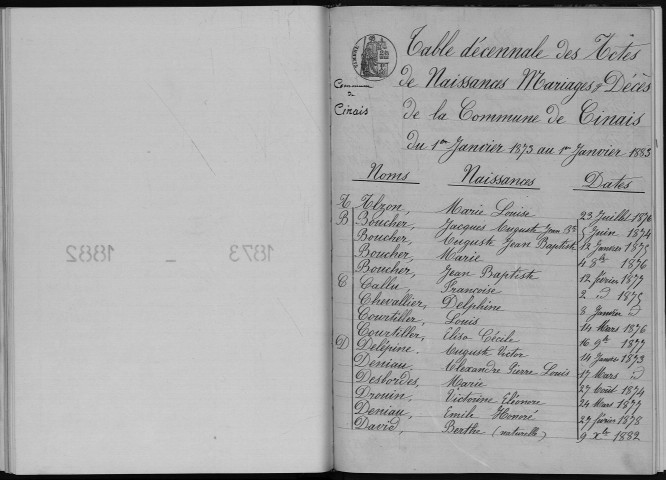 1873 – 1882
Table décennale des Actes
de Naissances Mariages & Décès
Commune
de
Cinais
de la Commune de Cinais
du 1er Janvier 1873 au 1er Janvier 1883
Noms Naissances Dates
A Alzon, Marie Louise 23 Juillet 1876
B Boucher, Jacques Auguste Jean Bte 5 Juin 1874
Boucher, Auguste Jean Baptiste 12 Janvier 1875
Boucher, Marie 4 8bre 1876
Boucher, Jean Baptiste 12 février 1877
C Callu, Françoise 2 id 1875
Chevallier, Delphine 8 Janvier id
Courtiller, Louis 14 Mars 1876
Courtiller, Elisa Cécile 16 9bre 1877
D Delépine, Auguste Victor 14 Janvier 1873
Deniau, Alexandre Pierre Louis 17 Mars id
Desbordes, Marie 27 Août 1874
Drouin, Victorine Eléonore 24 Mars 1877
Deniau, Emile Honoré 27 février 1878
David, Berthe (naturelle) 9 xbre 1882